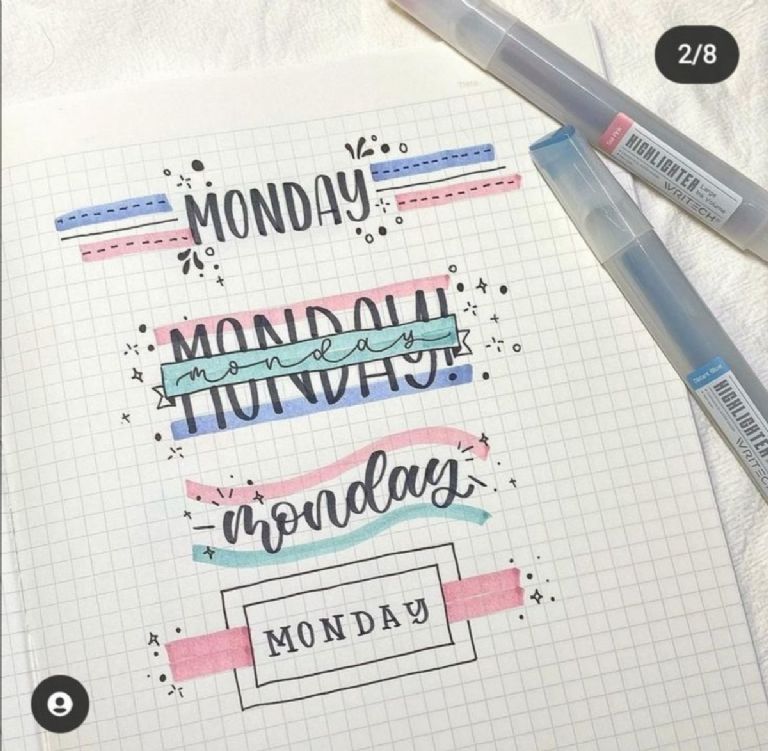 2/8
MONDAY
MONDAY!
monday
monday
MONDAY
HIGHLIGHTER
Large
Ink Volume
WRITECH
HIGHLIGHTER
WRITECH